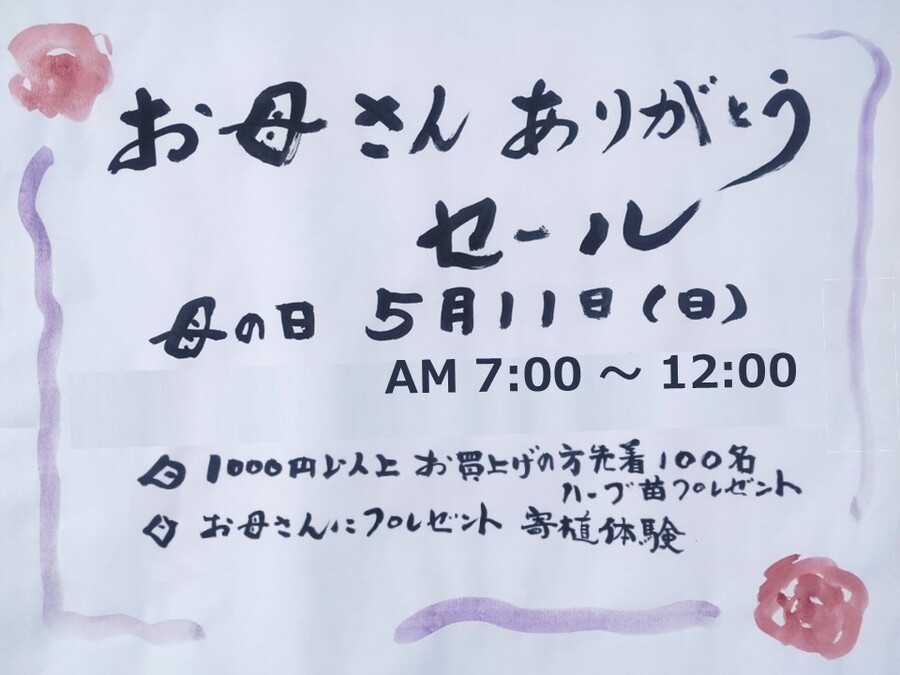 お母さん ありがとう
セール
母の日 5月11日(日)
AM 7:00 ～ 12:00
1000円以上 お買上げの方先着100名
ハーブ苗プレゼント
お母さんにプレゼント 寄植体験